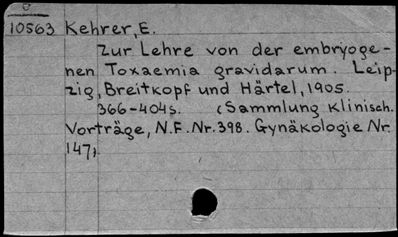 10563 Kehrer, E.
Zur Lehre von der embryoge-
nen Toxaemia gravidarum. Leip-
zig, Breitkopf und Härtel, 1905.
366-404s. (Sammlung klinisch.
Vorträge, N.F. Nr. 398. Gynäkologie Nr.
147)